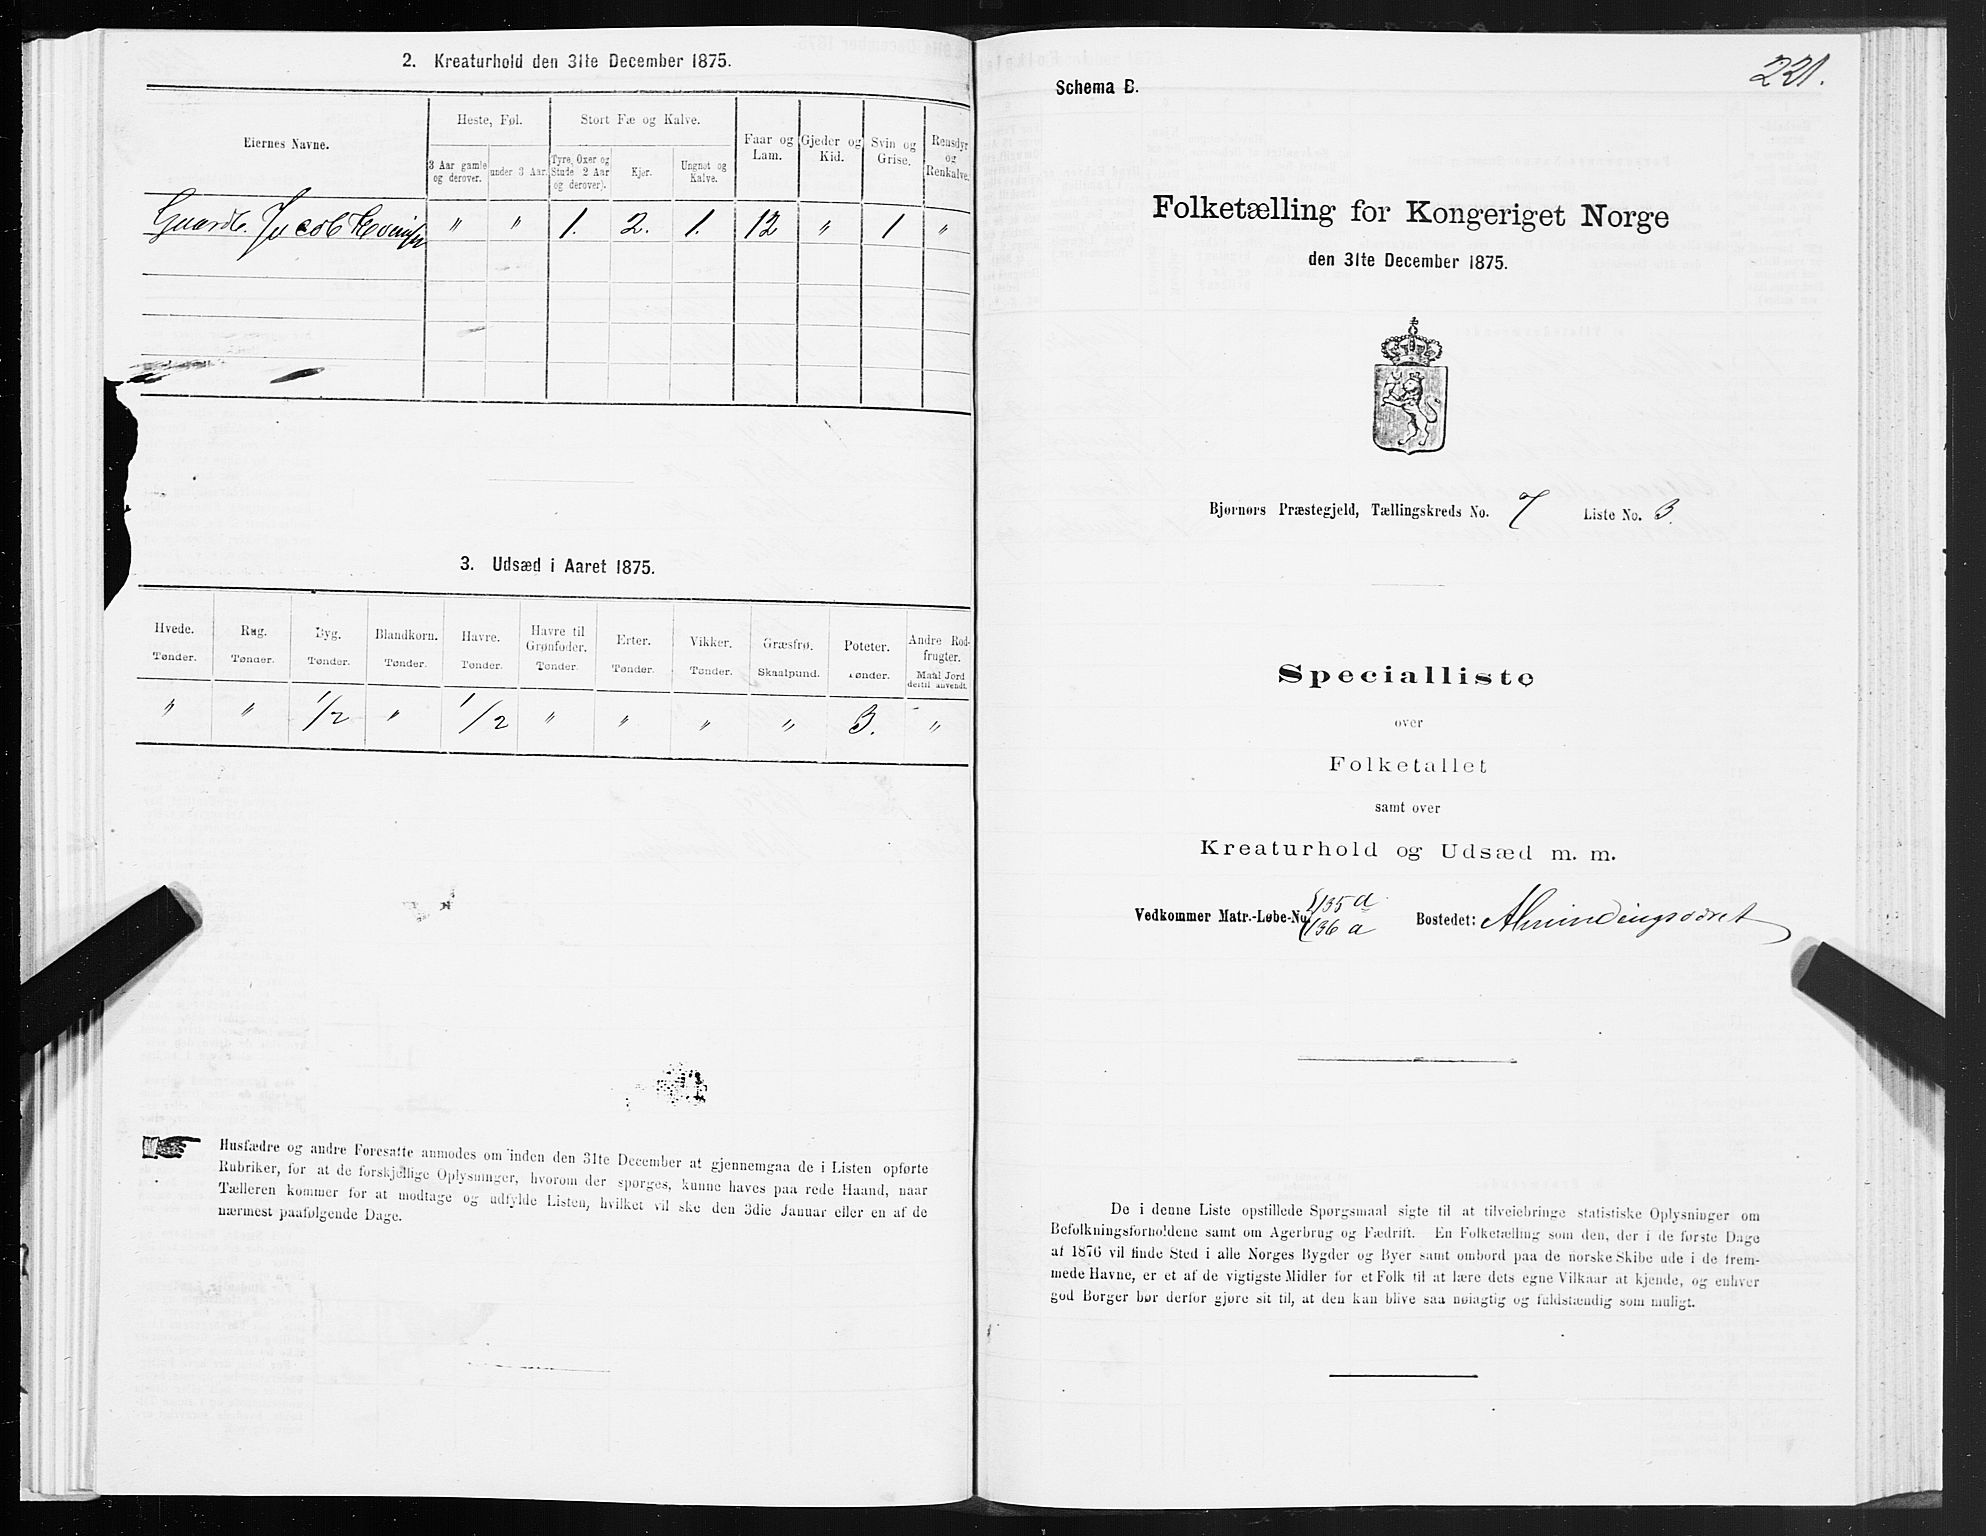 2. Kreaturhold den 31te December 1875.
Eiernes Navne.
Heste, Føl.
Stort Fæ og Kalve.
Faar og Lam.
Gjeder og Kid.
Svin og Grise.
Rensdyr og Renkalve.
3 Aar gamle og derover.
under 3 Aar.
Tyre, Oxer og Stude 2 Aar og derover).
Kjør.
Ungnøt og Kalve.
Gaardb. Jacob " " 1. 2. 1. 12 " 1 "
3. Udsæd i Aaret 1875.
Hvede. Rug. Byg. Blandkorn. Havre. Havre til Grønfoder. Erter. Vikker. Græsfrø. Poteter. Andre Rodfrugter.
Tønder. Tønder. Tønder. Tønder. Tønder. Tønder. Tønder. Tønder. Skaalpund. Tønder. Maal Jord dertil anvendt.
" " 1/2 " 1/2 " " " " 3. "
Husfædre og andre Foresatte anmodes om inden den 31te December at gjennemgaa de i Listen opførte
Rubriker, for at de forskjellige Oplysninger, hvorom der spørges, kunne haves paa rede Haand, naar
Tælleren kommer for at modtage og udfylde Listen, hvilket vil ske den 3die Januar eller en af de
nærmest paafølgende Dage.
221.
Schema B.
Folketælling for Kongeriget Norge
den 31te December 1875.
Bjørnørs Præstegjeld, Tællingskreds No. 7 Liste No. 3.
Specialliste
over
Folketallet
samt over
Kreaturhold og Udsæd m. m.
Vedkommer Matr.-Løbe-No. 135 d 136 a Bostedet: Almindingsøret
De i denne Liste opstillede Spørgsmaal sigte til at tilveiebringe statistiske Oplysninger om
Befolkningsforholdene samt om Agerbrug og Fædrift. En Folketælling som den, der i de første Dage
af 1876 vil finde Sted i alle Norges Bygder og Byer samt ombord paa de norske Skibe ude i de frem-
mede Havne, er et af de vigtigste Midler for et Folk til at lære dets egne Vilkaar at kjende, og enhver
god Borger bør derfor gjøre sit til, at den kan blive saa nøiagtig og fuldstændig som muligt.